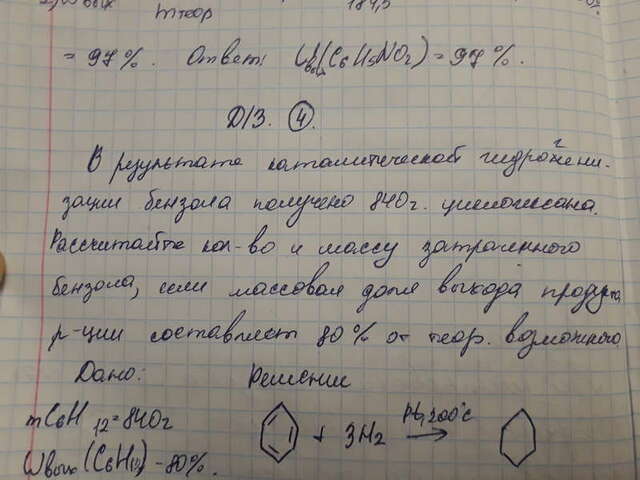 mтеор 184,5
= 97%. Ответ: ωвых(C6H5NO2) = 97%.
Д/З. 4.
В результате каталитической гидрогени-
зации бензола получено 840г. циклогексана.
Рассчитайте кол-во и массу затраченного
бензола, если массовая доля выхода продукта
р-ции составляет 80% от теор. возможного.
Дано: Решение
mC6H12=840г
+ 3H2 Pt, 200°C →
ωвых(C6H12) - 80%.